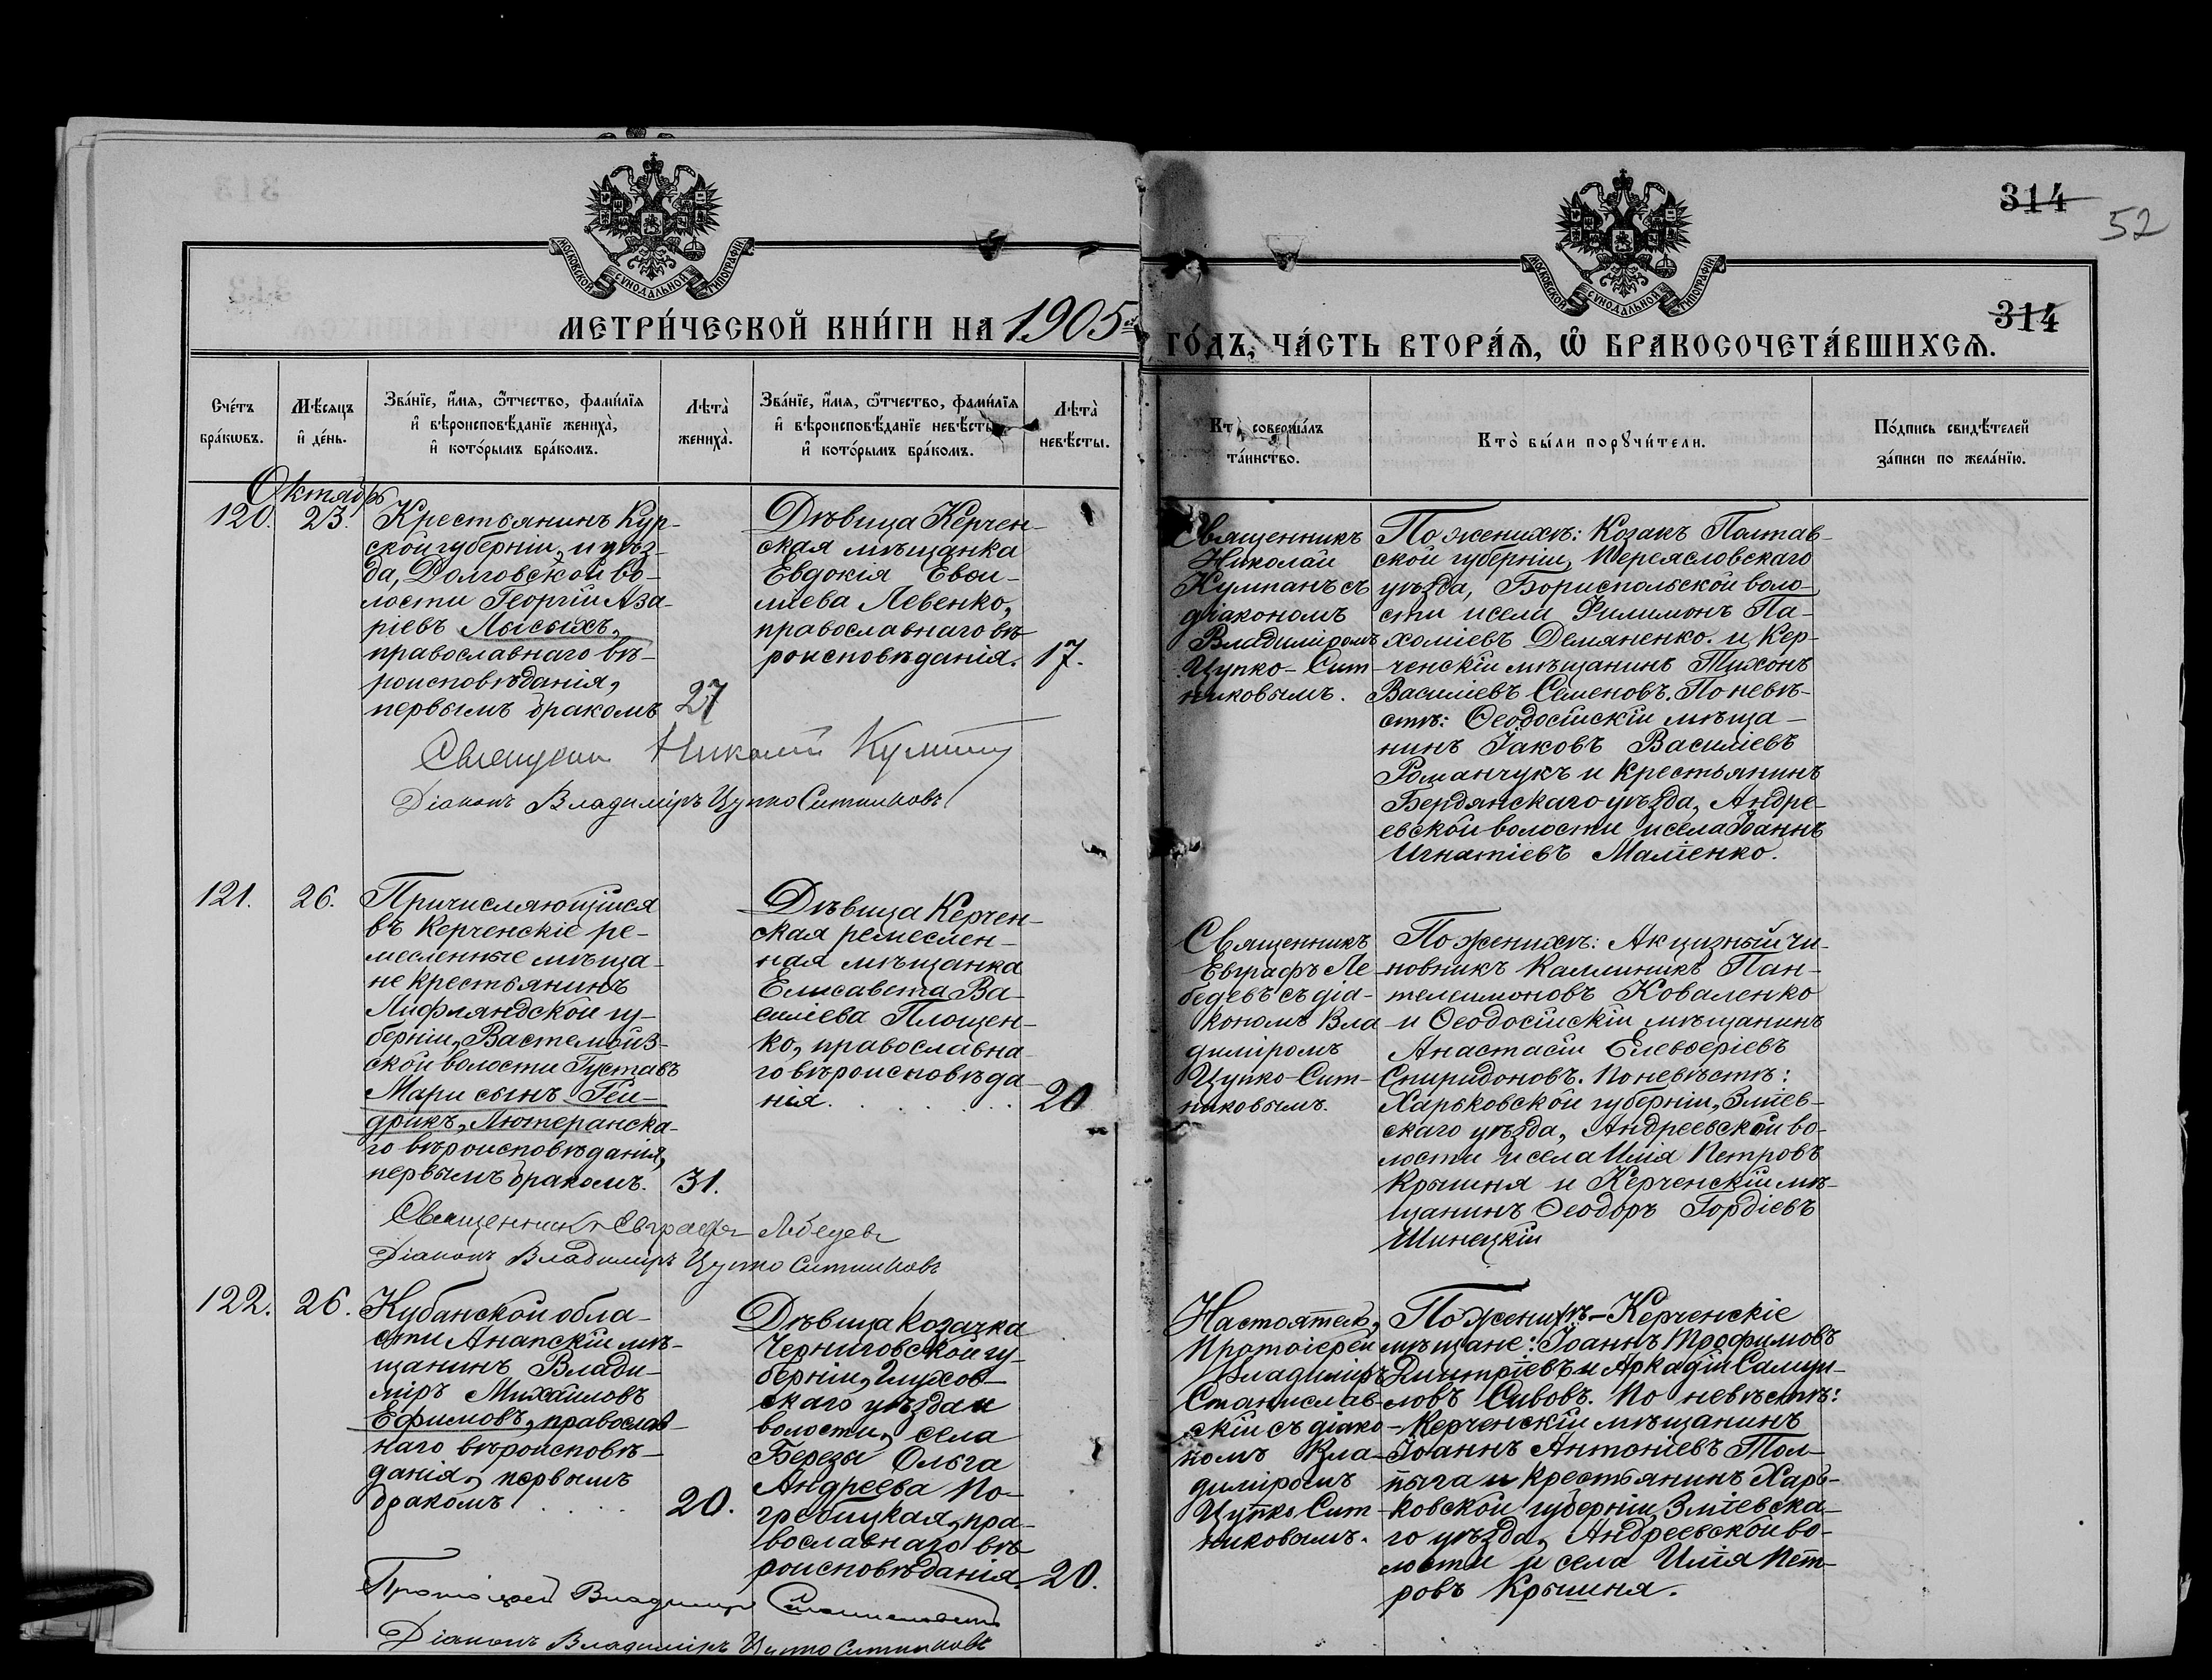 314
52
МОСКОВСКОЙ СѴНОДАЛЬНОЙ ТИПОГРАФІИ
МОСКОВСКОЙ СѴНОДАЛЬНОЙ ТИПОГРАФІИ
314
МЕТРИ́ЧЕСКОЙ КНИ́ГИ НА 1905й
ГО́ДЪ, ЧА́СТЬ ВТОРА́Ѧ, Ѡ҆ БРАКОСОЧЕТА́ВШИХСѦ.
Счéтъ
брáкωвъ.
Мѣ́сяцъ
и҆ дéнь.
Звáнїе, и҆́мя, ѻ҆́тчество, фамѝлїя
и҆ вѣроисповѣ́данїе женихà,
и҆ котóрымъ брáкомъ.
Лѣтà
женихà.
Звáнїе, и҆́мя, ѻ҆́тчество, фамѝлїя
и҆ вѣроисповѣ́данїе невѣ́сты,
и҆ котóрымъ брáкомъ.
Лѣтà
невѣ́сты.
Кто̀ совершáлъ
тáинство.
Кто̀ бы́ли порꙋчи́тели.
Пóдпись свидѣ́телей
зáписи по желáнїю.
Октябрь
120.
23.
Крестьянинъ Кур-
ской губерніи, и уѣз-
да, Долговской во-
лости Георгій Аза-
ріевъ Лысыхъ,
православнаго вѣ-
роисповѣданія,
первымъ бракомъ
27
Дѣвица Керчен-
ская мѣщанка
Евдокія Евѳи-
міева Левенко,
православнаго вѣ
роисповѣданія.
17.
Священникъ
Николай
Кумпанъ съ
діакономъ
Владиміромъ
Цупко-Сит-
никовымъ.
По женихѣ: Козакъ Полтав-
ской губерніи, Переясловскаго
уѣзда, Бориспольской воло-
сти и села Филимонъ Па-
холіевъ Демяненко. и Кер-
ченскій мѣщанинъ Тихонъ
Василіевъ Семеновъ. По невѣ-
стѣ: Ѳеодосійскій мѣща-
нинъ Іаковъ Василіевъ
Романчукъ и крестьянинъ
Бердянскаго уѣзда, Андре-
евской волости и села Іоаннъ
Игнатіевъ Маліенко.
Священникъ Николай Кумпанъ
Діаконъ Владиміръ Цупко Ситниковъ
121.
26.
Причисляющійся
въ Керченскіе ре-
месленные мѣща-
не крестьянинъ
Лифляндской гу-
берніи, Вастемойз-
ской волости Густавъ
Мари сынъ Гей-
дрикъ, Лютеранска-
го вѣроисповѣданія,
первымъ бракомъ.
31.
Дѣвица Керчен-
ская ремеслен-
ная мѣщанка
Елисавета Ва-
силіева Площен-
ко, православна-
го вѣроисповѣда-
нія.
20
Священникъ
Евграфъ Ле-
бедевъ съ діа-
кономъ Вла-
диміромъ
Цупко-Сит-
никовымъ.
По женихѣ: Акцизный чи-
новникъ Каллиникъ Пан-
телеимоновъ Коваленко
и Ѳеодосійскій мѣщанинъ
Анастасій Елевѳеріевъ
Спиридоновъ. По невѣстѣ:
Харьковской губерніи, Зміев-
скаго уѣзда, Андреевской во-
лости и села Илія Петровъ
Крышня и Керченскій мѣ-
щанинъ Ѳеодоръ Гордіевъ
Шинецкій
Священникъ Евграфъ Лебедевъ
Діаконъ Владиміръ Цупко Ситниковъ
122.
26.
Кубанской обла-
сти Анапскій мѣ-
щанинъ Влади-
міръ Михайловъ
Ефимовъ, православ-
наго вѣроисповѣ-
данія, первымъ
бракомъ
20.
Дѣвица козачка
Черниговской гу-
берніи, Глухов-
скаго уѣзда и
волости, села
Березы Ольга
Андреева По-
гребицкая, пра-
вославнаго вѣ
роисповѣданія.
20.
Настоятель,
Протоіерей
Владиміръ
Станислав-
скій съ діако-
номъ Вла-
диміромъ
Цупко Сит-
никовымъ.
По женихѣ-Керченскіе
мѣщане: Іоаннъ Трофимовъ
Димитріевъ и Аркадій Самуи-
ловъ Сивовъ. По невѣстѣ:
Керченскій мѣщанинъ
Іоаннъ Антоніевъ Тол-
пыга и крестьянинъ Харь-
ковской губерніи, Зміевска-
го уѣзда, Андреевской во-
лости и села Илія Пет-
ровъ Крышня.
Протоіерей Владиміръ Станиславскій
Діаконъ Владиміръ Цупко Ситниковъ